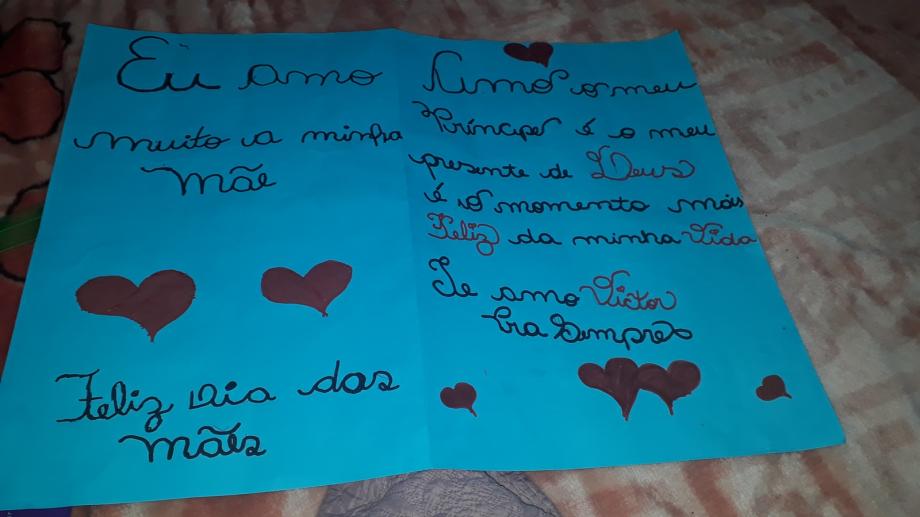 Eu amo
muito a minha
mãe
Feliz dia das
mães
Amo o meu
Príncipe é o meu
presente de Deus
é o momento mais
Feliz da minha Vida
Te amo Victor
Pra Sempre